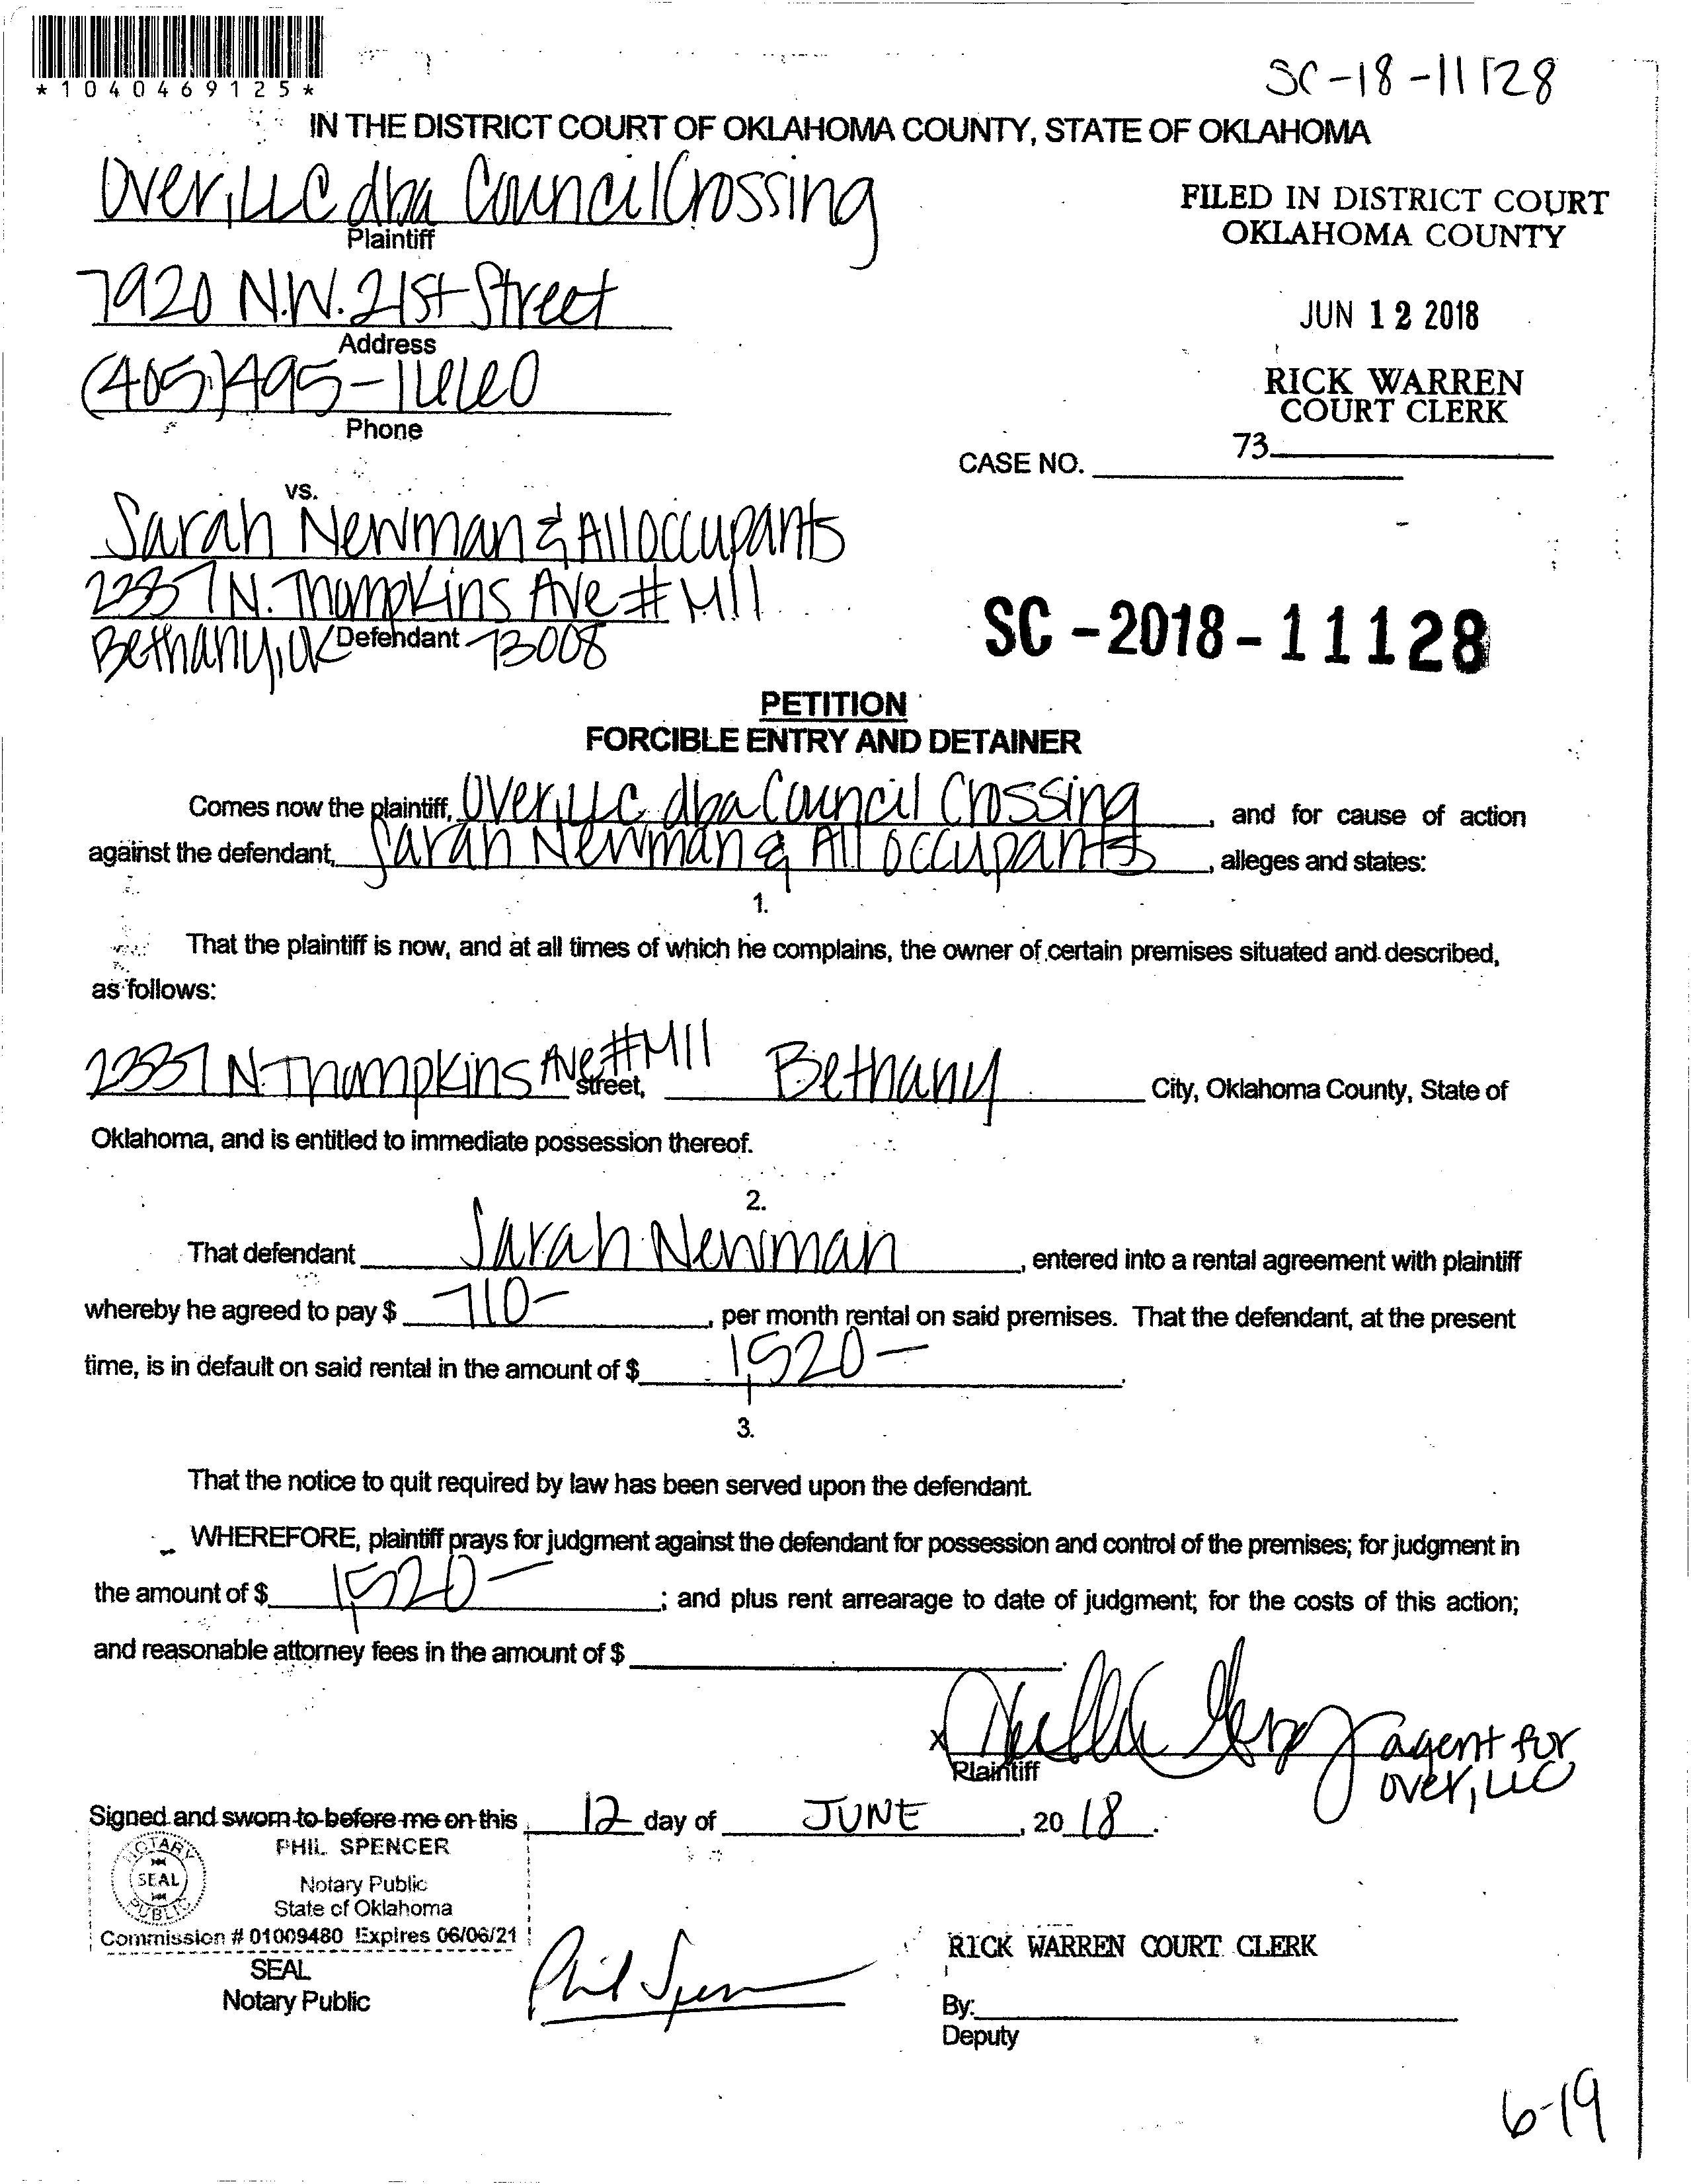 *1040469125*
SC-18-11128
IN THE DISTRICT COURT OF OKLAHOMA COUNTY, STATE OF OKLAHOMA
Over, LLC dba Council Crossing
Plaintiff
FILED IN DISTRICT COURT
OKLAHOMA COUNTY
7920 N.W. 21st Street
Address
JUN 12 2018
(405) 495-1660
Phone
RICK WARREN
COURT CLERK
73
CASE NO.
vs.
Sarah Newman & All occupants
2337 N. Thompkins Ave #M11
Bethany, OK 73008
Defendant
SC-2018-11128
PETITION
FORCIBLE ENTRY AND DETAINER
Comes now the plaintiff, Over, LLC dba Council Crossing, and for cause of action
against the defendant, Sarah Newman & All occupants, alleges and states:
1.
That the plaintiff is now, and at all times of which he complains, the owner of certain premises situated and described,
as follows:
2337 N. Thompkins Ave #M11 street, Bethany City, Oklahoma County, State of
Oklahoma, and is entitled to immediate possession thereof.
2.
That defendant Sarah Newman, entered into a rental agreement with plaintiff
whereby he agreed to pay $ 710-, per month rental on said premises. That the defendant, at the present
time, is in default on said rental in the amount of $ 1,520-.
3.
That the notice to quit required by law has been served upon the defendant.
WHEREFORE, plaintiff prays for judgment against the defendant for possession and control of the premises; for judgment in
the amount of $ 1,520-; and plus rent arrearage to date of judgment; for the costs of this action;
and reasonable attorney fees in the amount of $ .
x agent for
Plaintiff over, LLC
Signed and sworn to before me on this 12 day of JUNE, 20 18.
PHIL SPENCER
NOTARY SEAL PUBLIC
Notary Public
State of Oklahoma
Commission # 01009480 Expires 06/06/21
SEAL
Notary Public
Phil Spencer
RICK WARREN COURT CLERK
By:
Deputy
6-19